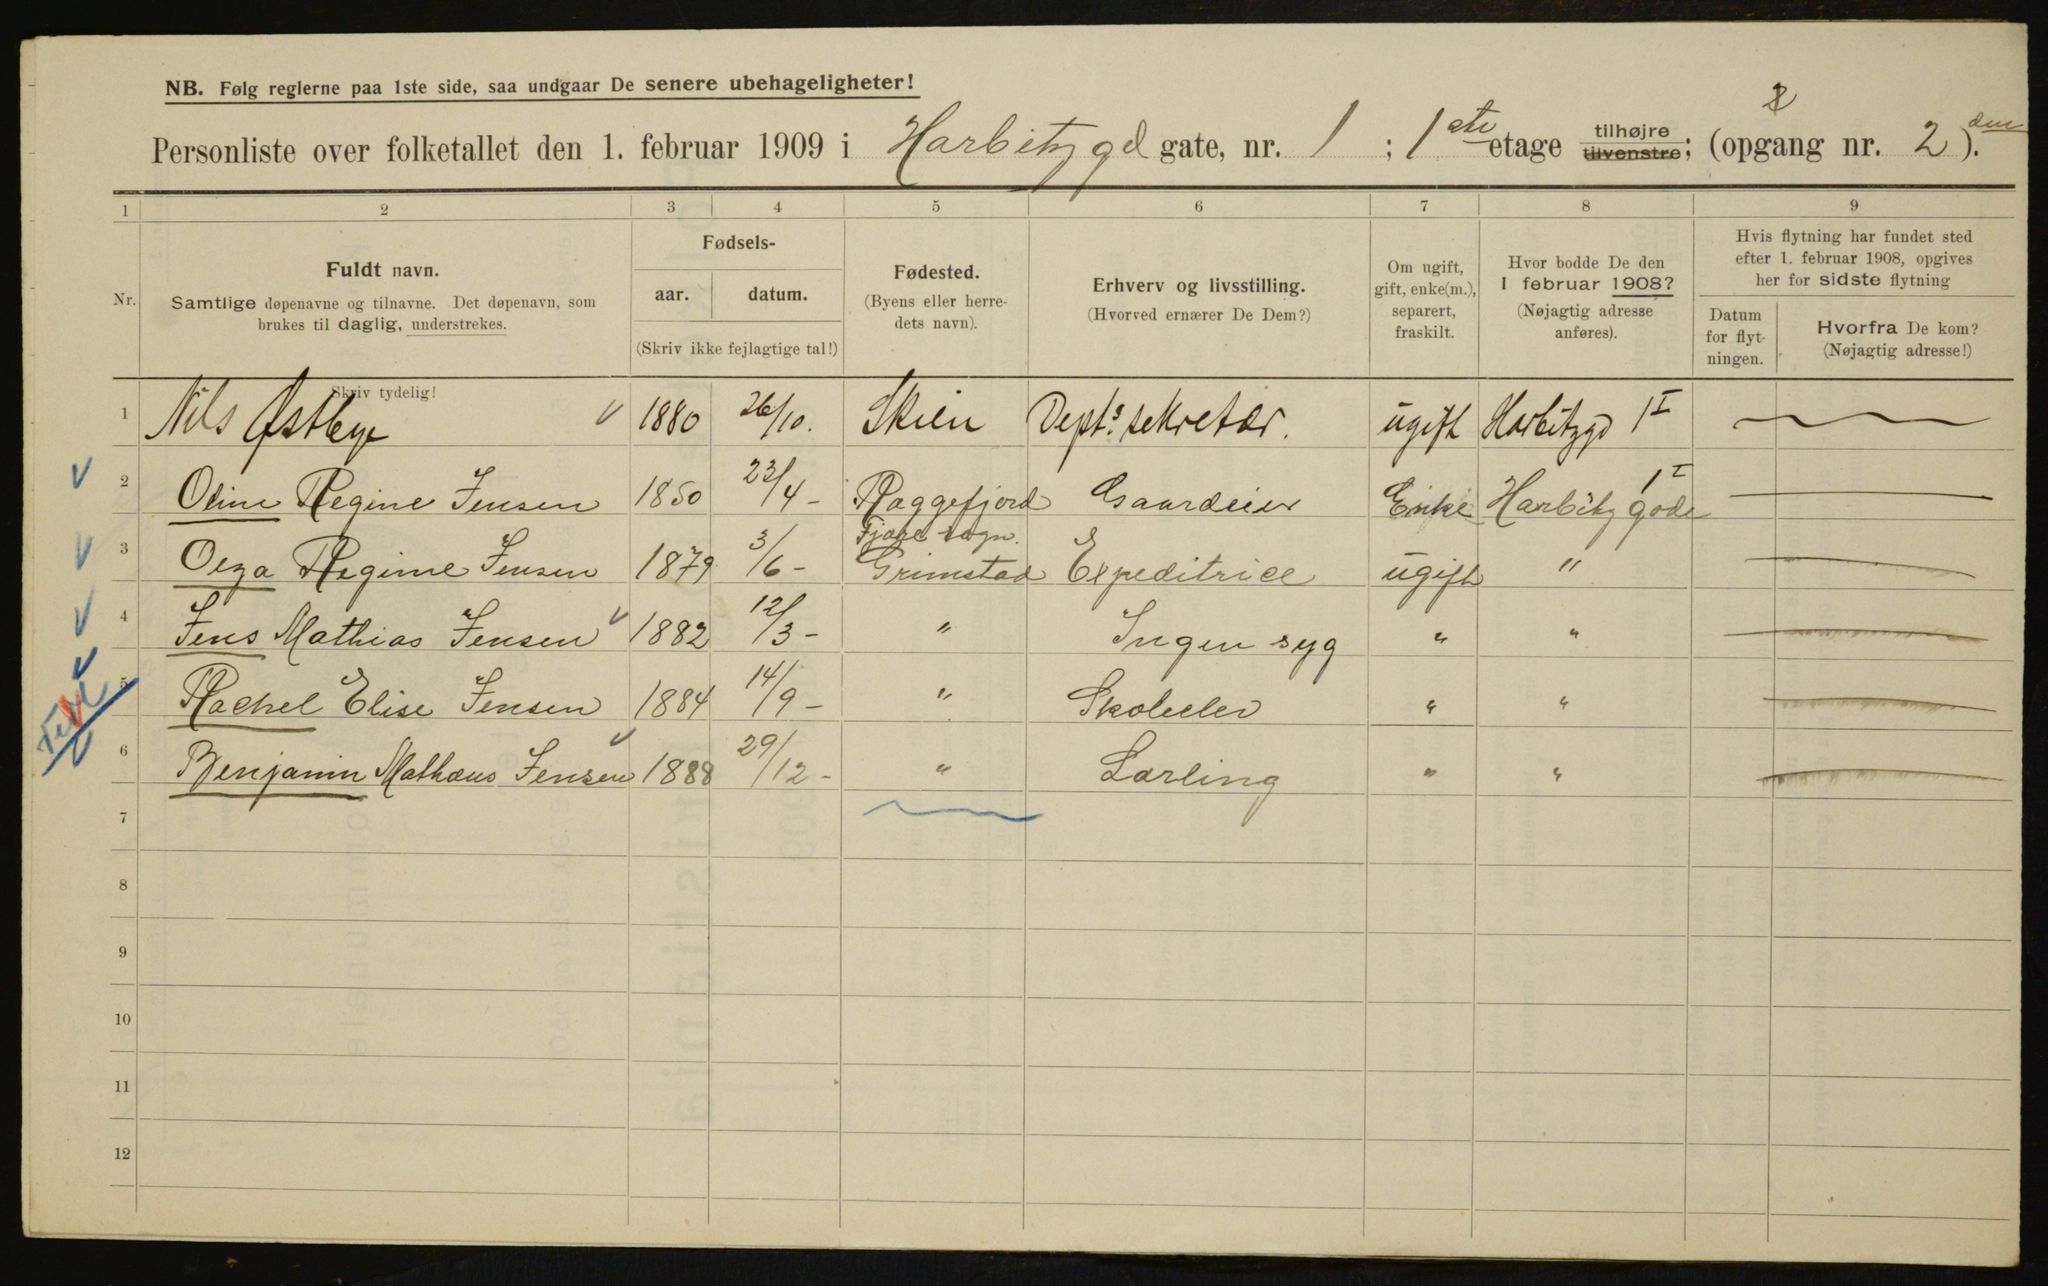 NB. Følg reglerne paa 1ste side, saa undgaar De senere ubehageligheter!
2
Personliste over folketallet den 1. februar 1909 i Harbitzgd gate, nr. 1 ; 1 ste etage tilhøjre tilvenstre; (opgang nr. 2 den ).
1 2 3 4 5 6 7 8 9
Nr.
Fuldt navn.
Samtlige døpenavne og tilnavne. Det døpenavn, som
brukes til daglig, understrekes.
Skriv tydelig!
Fødsels-
aar. datum.
(Skriv ikke fejlagtige tal!)
Fødested.
(Byens eller herre-
dets navn).
Erhverv og livsstilling.
(Hvorved ernærer De Dem?)
Om ugift,
gift, enke(m.),
separert,
fraskilt.
Hvor bodde De den
1 februar 1908?
(Nøjagtig adresse
anføres).
Hvis flytning har fundet sted
efter 1. februar 1908, opgives
her for sidste flytning
Datum
for flyt-
ningen.
Hvorfra De kom?
(Nøjagtig adresse!)
1 Nils Østbye 1880 26/10. Skien Dept.s sekretær. ugift Harbitzgd 1 I
2 Oline Regine Jensen 1850 23/4 - Raggefjord Gaardeier Enke Harbitz gade 1 I
3 Olga Regine Jensen 1879 3/6 - Fjære sogn. Grimstad Expeditrice ugift "
4 Jens Mathias Jensen 1882 12/3 - " Ingen syg " "
5 Rachel Elise Jensen 1884 14/9 - " Skoleelev " "
6 Benjamin Mathæus Jensen 1888 29/12 - " Lærling " "
7
8
9
10
11
12